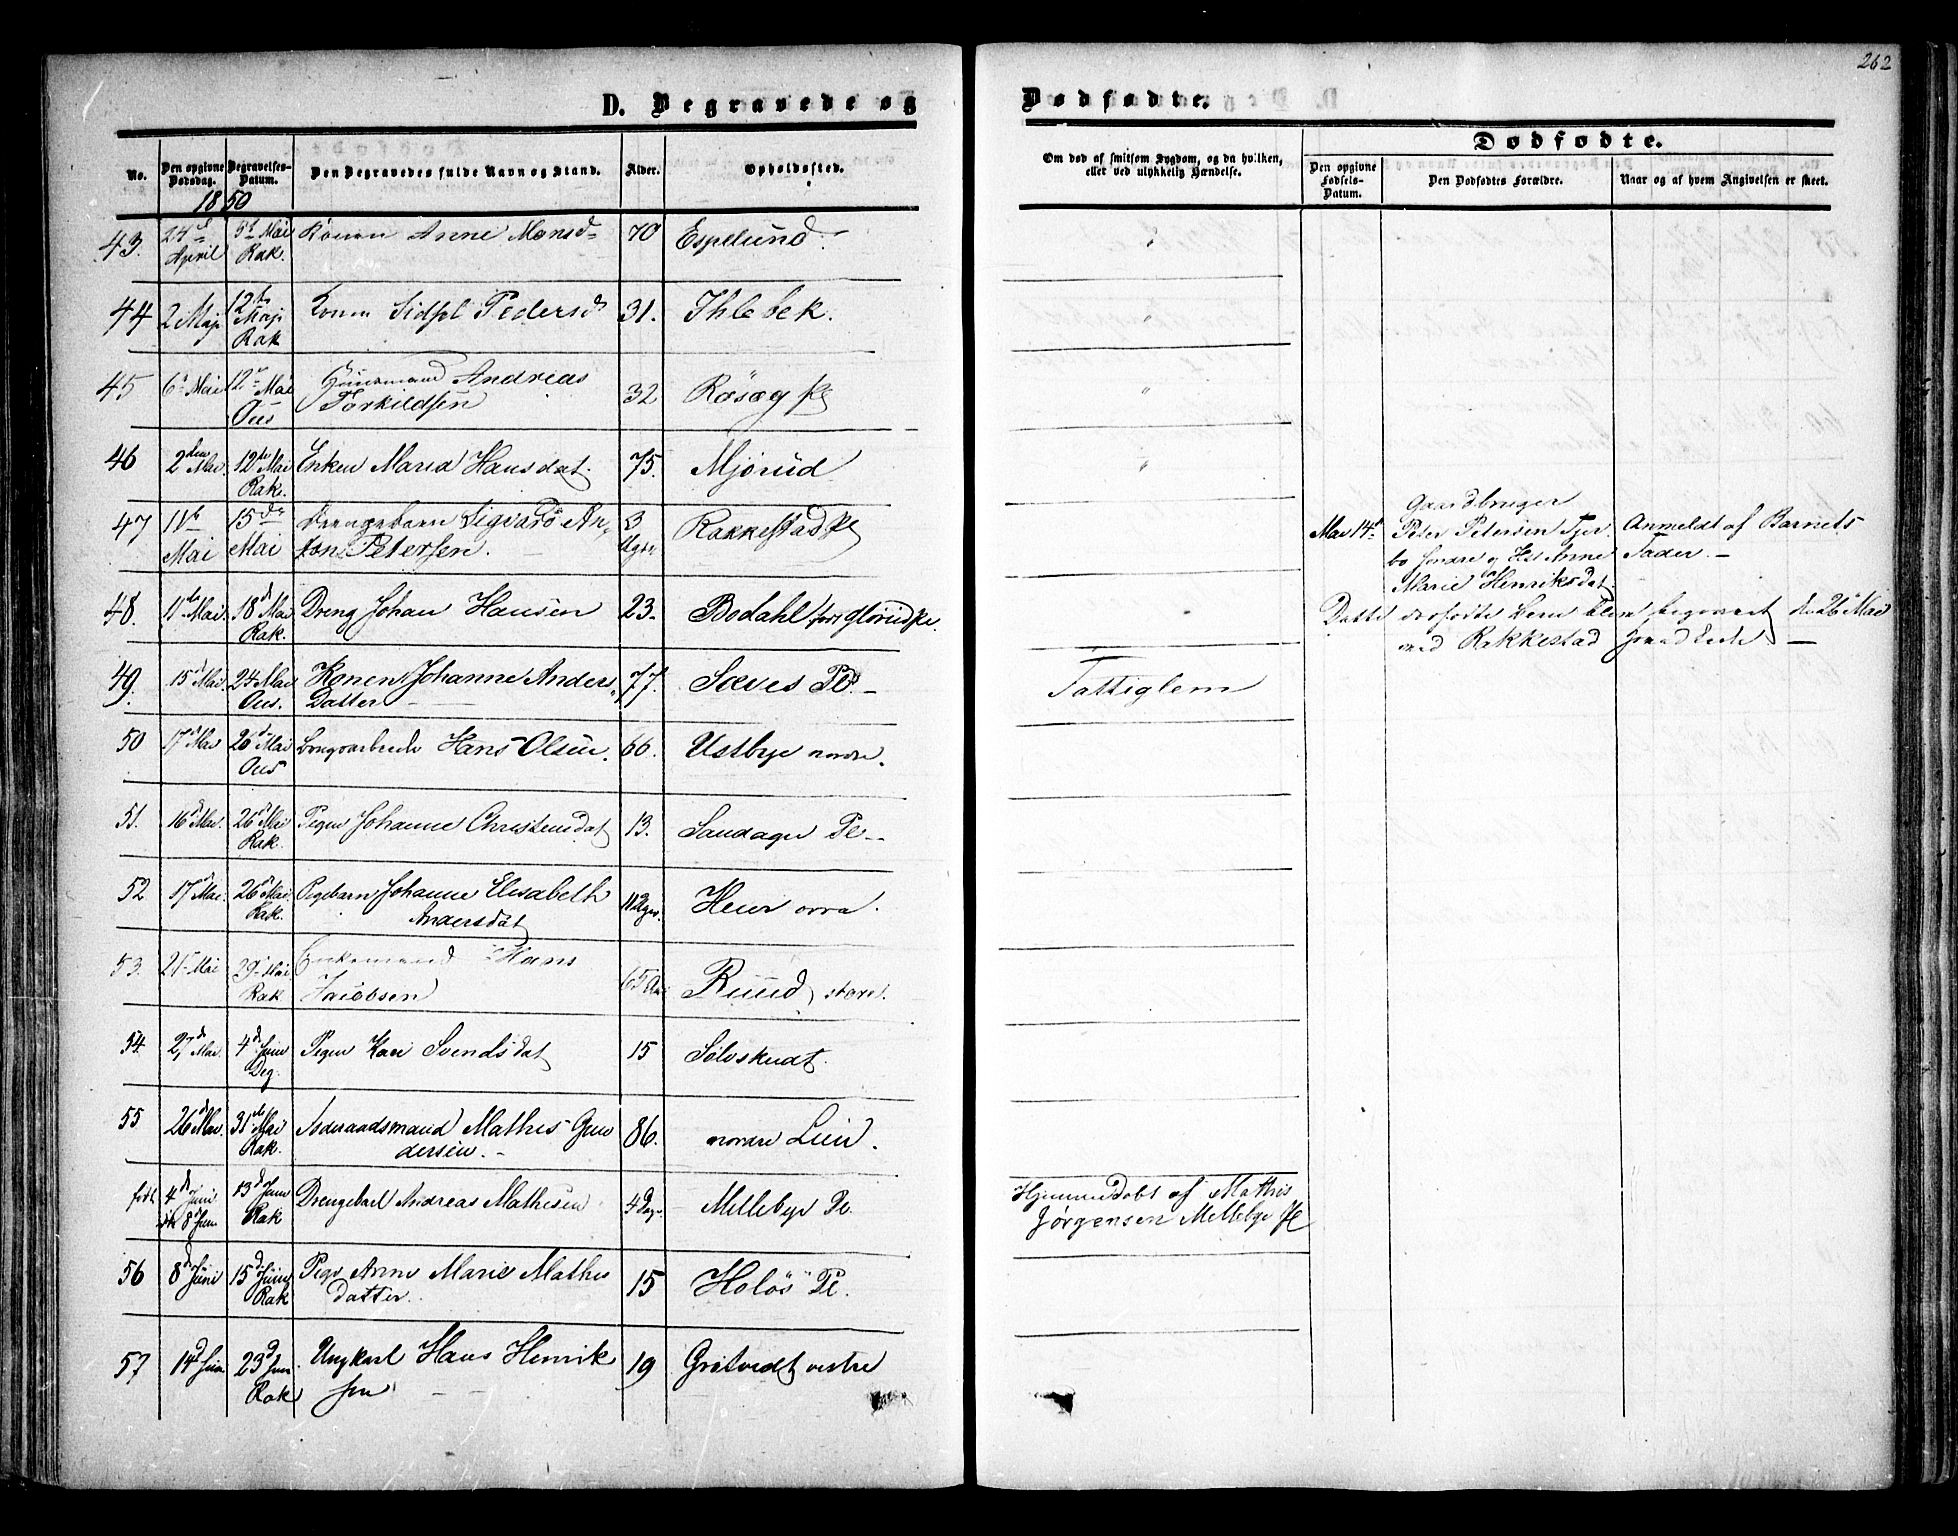 262
D. Begravede og Dødfødte.
No.
Den opgivne Dødsdag.
Begravelses-Datum.
Den Begravedes fulde Navn og Stand.
Alder.
Opholdssted.
Om død af smitsom Sygdom, og da hvilken, eller ved ulykkelig Hændelse.
Dødfødte.
Den opgivne Fødsels-Datum.
Den Dødfødtes Forældre.
Naar og af hvem Angivelsen er skeet.
1850
43. 24de April 5te Mai Rak. Konen Anne Monsd. 70 Espelund. "
44 2 Maji 12te Maji Rak Konen Pedersd 31. Ihlebek.
45 6te Mai 12te Mai Ous Andreas Torkildsen 32 Røsæg Pl "
46 2den Mai 12te Mai Rak. Enken Maria Hansdat. 75. Mjørud "
47 11te Mai 15de Mai Drengebarn Sigvard Anton Petersen. 3 Uger Rakkestad Pl
48. 11te Mai 18de Mai Rak. Dreng Johan Hansen 23. Bodahl
49. 15de Mai 24 Mai Ous. Konen Johanne Anders Datter 77. Sæves Pl. Fattiglem
50 17de Mai 26de Mai Ous Hans Olsen. 66. Ustbye nordre.
51. 16de Mai. 26de Mai Rak. Pigen Johanne Christensdat 13. Sandager Pl.
52 17de Mai. 26de Mai Rak. Pigebarn Johanne Elisabeth Andersdat 11 Uger. Heier øvra.
53. 21de Mai 29de Mai Rak Enkemand Hans Jacobsen 65 Aar Ruud store.
54. 27de Mai 4de Juni Deg. Pigen Kari Svendsdat 15 Sølvskudt.
55 26de Mai. 31te Mai Rak. Mathis Gundersen. 86. nordre Lein.
født 4de Juni død 8de Juni 13de Juni Rak Drengebarn Andreas Mathesen 4 Dage. Mellebye Pl. Hjemmedøbt af Mathis Jørgensen Mellebye Pl
56 8de Juni 15de Juni Rak Pige Anne Marie Mathisdatter. 15 Holøs Pl.
57 14de Juni 23de Juni Rak Ungkarl Hans Henriksen 19 Gratvedt vestre
Mai 14de
Gaardbruger
Peter Petersen Tjerbo søndre og Hst Anne
Marie Henriksdat.
Anmeldt af Barnets
Fader. —
Dette dødfødte Barn blev begravet den 26de Mai
ved Rakkestad